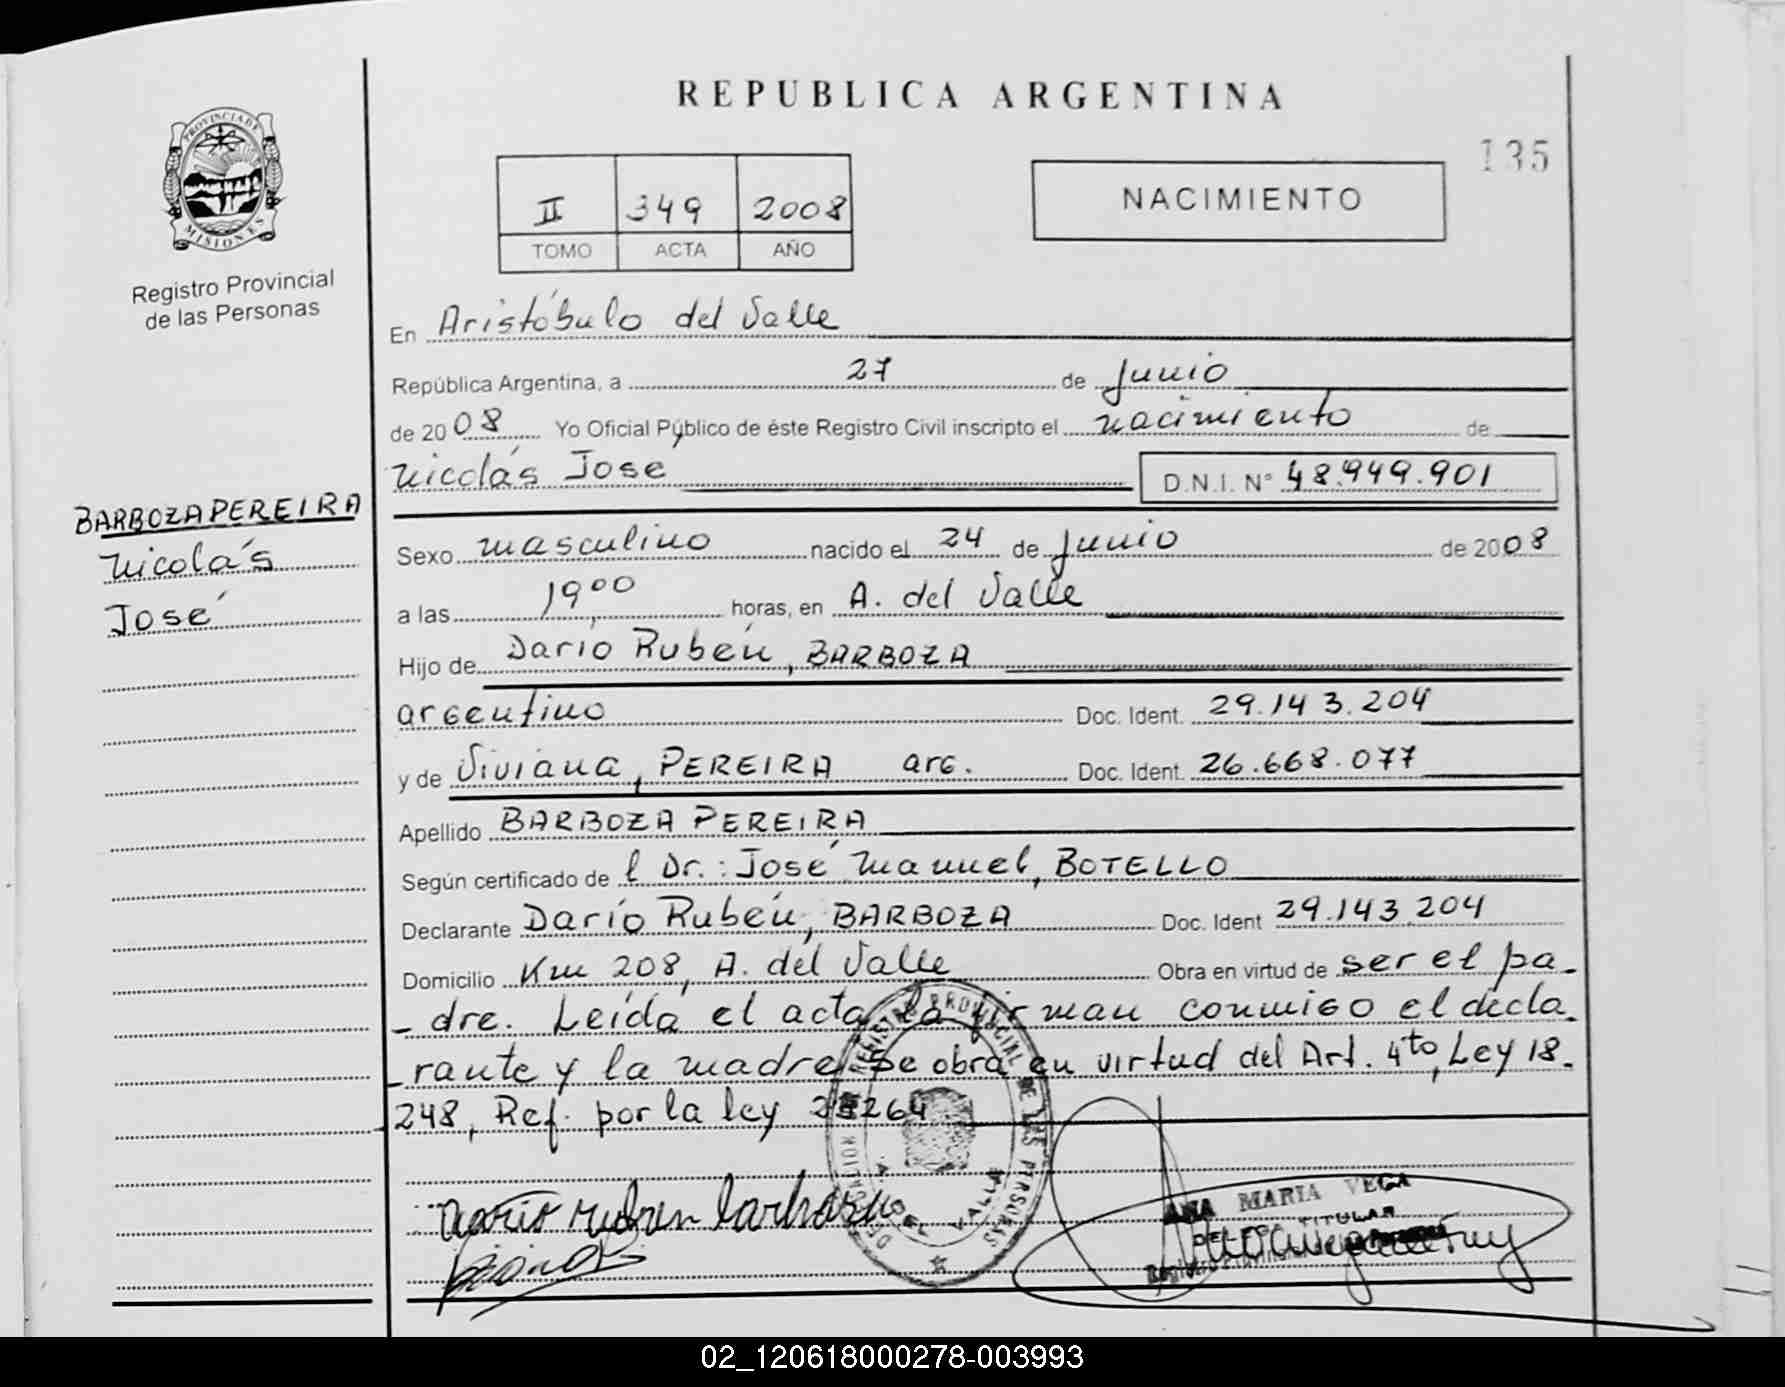 REPUBLICA ARGENTINA
135
PROVINCIA DE
MISIONES
Registro Provincial
de las Personas
II 349 2008
TOMO ACTA AÑO
NACIMIENTO
En Aristóbulo del Valle
República Argentina, a 27 de Junio
de 2008 Yo Oficial Público de éste Registro Civil inscripto el nacimiento de
Nicolás José D.N.I. N° 48.949.901
BARBOZA PEREIRA
Nicolás
José
Sexo masculino nacido el 24 de Junio de 2008
a las 19,00 horas, en A. del Valle
Hijo de Darío Rubén, BARBOZA
argentino Doc. Ident. 29.143.204
y de Viviana, PEREIRA arg. Doc. Ident. 26.668.077
Apellido BARBOZA PEREIRA
Según certificado de l Dr.: José Manuel, BOTELLO
Declarante Darío Rubén, BARBOZA Doc. Ident 29.143.204
Domicilio Km 208, A. del Valle Obra en virtud de ser el pa-
-dre. Leída el acta la firman conmigo el decla-
-rante y la madre. Se obra en virtud del Art. 4to, Ley 18.
248, Ref. por la ley 264
REGISTRO PROVINCIAL DE LAS PERSONAS
DEL VALLE
ANA MARIA VEGA
TITULAR
02_120618000278-003993